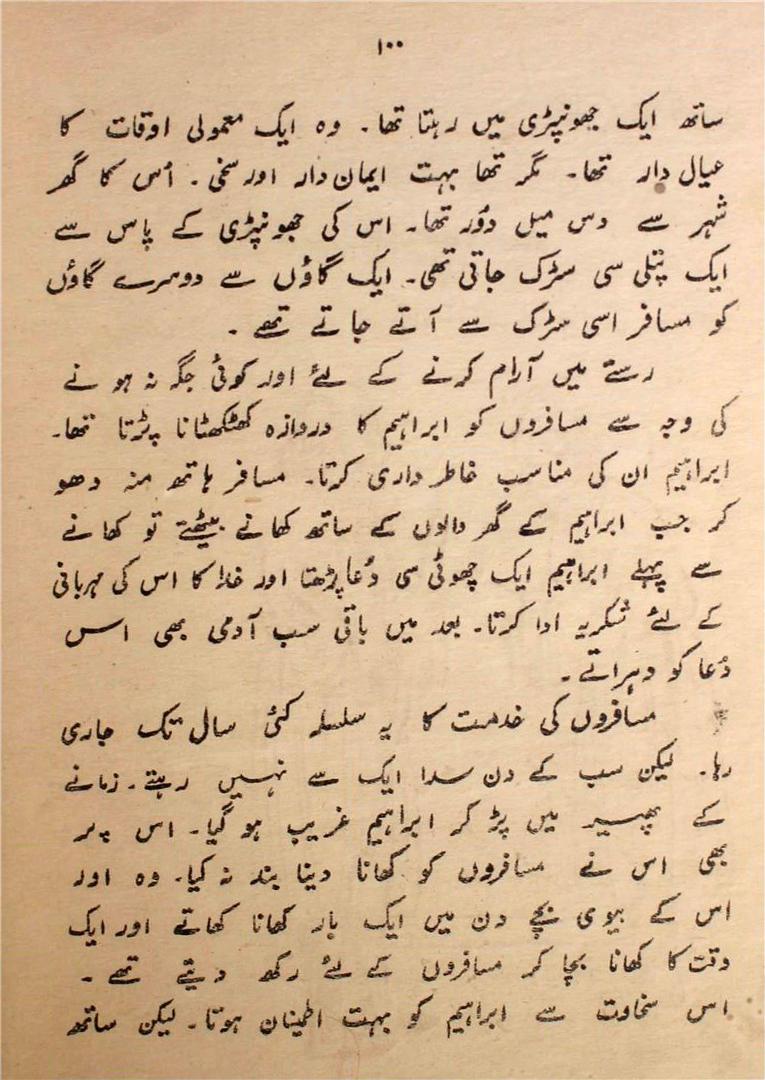 ۱۰۰
ساتھ ایک جھونپڑی میں رہتا تھا۔ وہ ایک معمولی اوقات کا
عیال دار تھا۔ مگر تھا بہت ایمان دار اور سخی۔ اُس کا گھر
شہر سے دس میل دُور تھا۔ اس کی جھونپڑی کے پاس سے
ایک پتلی سی سڑک جاتی تھی۔ ایک گاؤں سے دوسرے گاؤں
کو مسافر اسی سڑک سے آتے جاتے تھے۔
رستے میں آرام کرنے کے لئے اور کوئی جگہ نہ ہونے
کی وجہ سے مسافروں کو ابراہیم کا دروازہ کھٹکھٹانا پڑتا تھا۔
ابراہیم ان کی مناسب خاطر داری کرتا۔ مسافر ہاتھ منہ دھو
کر جب ابراہیم کے گھر والوں کے ساتھ کھانے بیٹھتے تو کھانے
سے پہلے ابراہیم ایک چھوٹی سی دُعا پڑھتا اور خدا کا اس کی مہربانی
کے لئے شکریہ ادا کرتا۔ بعد میں باقی سب آدمی بھی اس
دُعا کو دہراتے۔
مسافروں کی خدمت کا یہ سلسلہ کئی سال تک جاری
رہا۔ لیکن سب کے دن سدا ایک سے نہیں رہتے۔ زمانے
کے پھیر میں پڑ کر ابراہیم غریب ہو گیا۔ اس پر
بھی اس نے مسافروں کو کھانا دینا بند نہ کیا۔ وہ اور
اس کے بیوی بچے دن میں ایک بار کھانا کھاتے اور ایک
وقت کا کھانا بچا کر مسافروں کے لئے رکھ دیتے تھے۔
اس سخاوت سے ابراہیم کو بہت اطمینان ہوتا۔ لیکن ساتھ